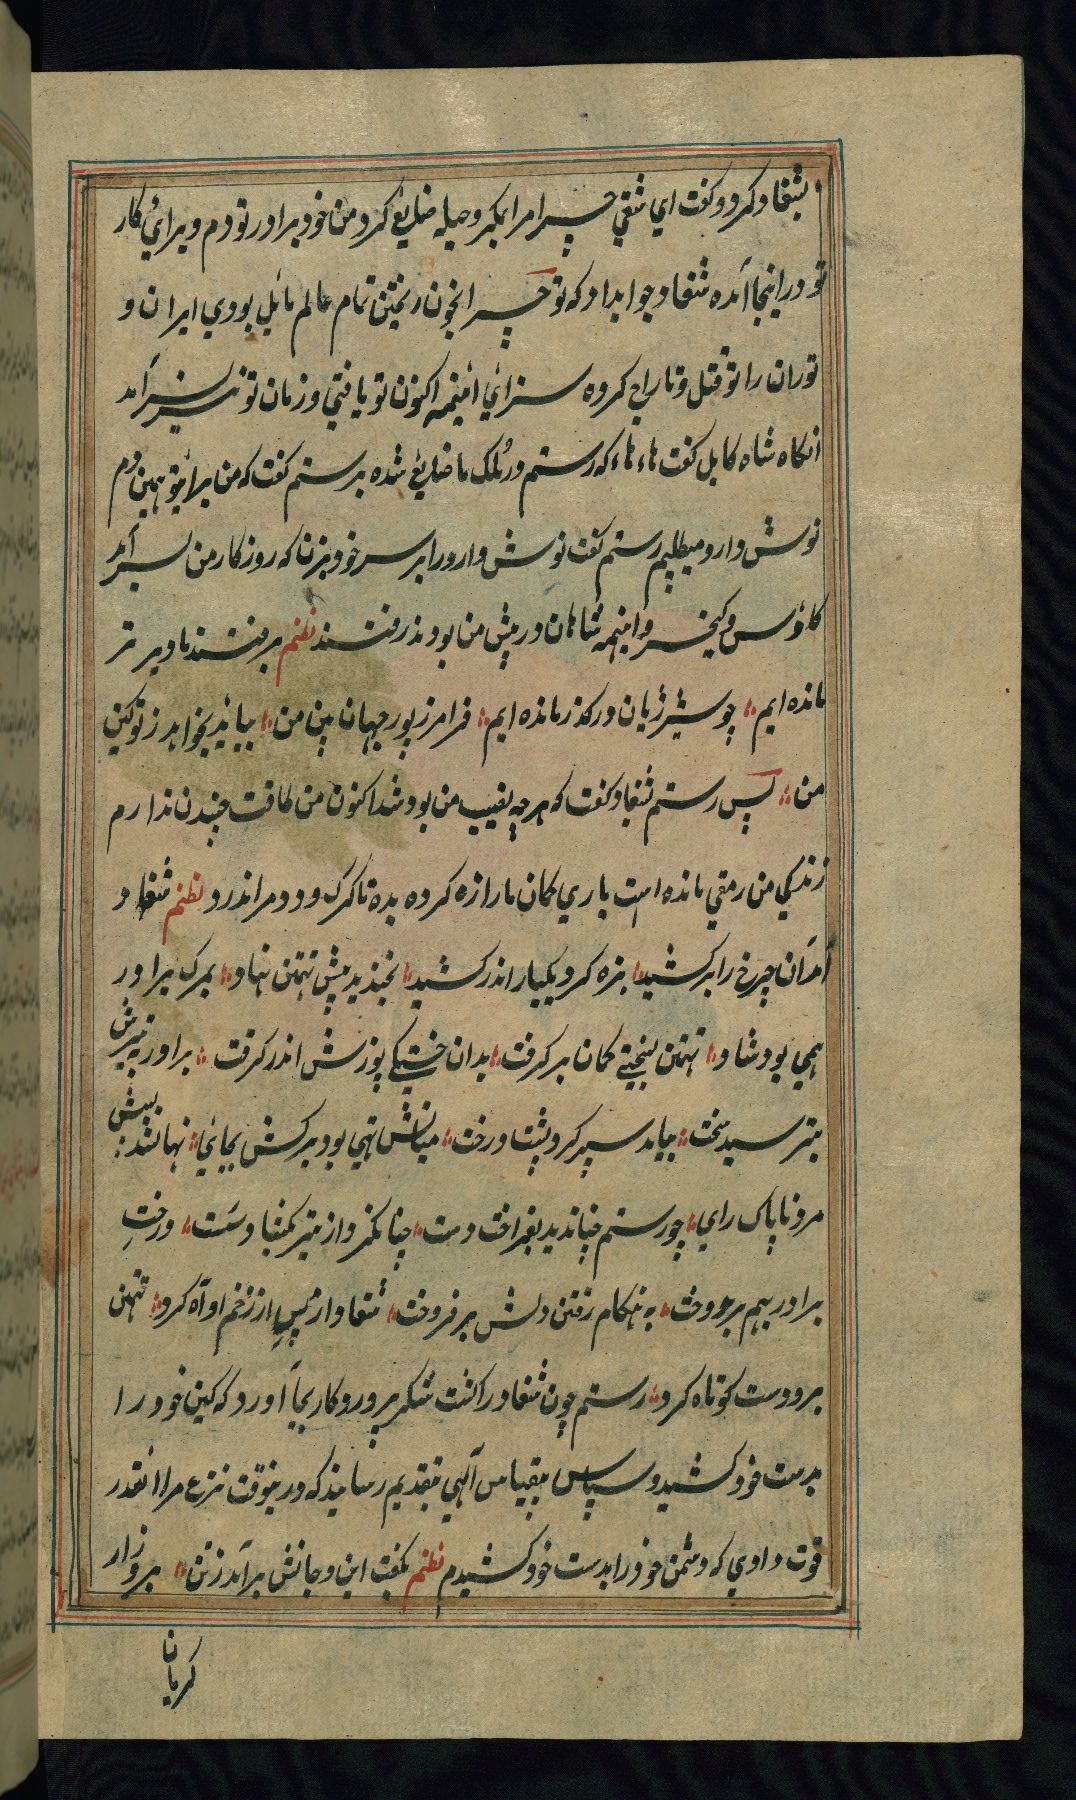 بشغاد کرد و کفت ای شقی چرا مرا بمکر و حیله ضایع کرد من خود برادر تو دم و برای کار
تو در اینجا آمده شغاد جوابداد که تو چرا بخون ریختن تمام عالم مایل بودی ایران و
توران را تو قتل و تاراج کرده سزای اینهمه اکنون تو یافتی و زمان تو نیز بسر آمد
انکاه شاه کابل کفت هاء هاء که رستم در ملک ما ضایع شده برستم کفت که من برایتو همین دم
نوش دارو میطلبم رستم کفت نوش دارو را بر سر خود بزن که روزکار من بسر آمد
کاؤس و کیخسرو اینهمه شاهان در پیش من بودند رفتند نظم برفتند ما دیر تر
مانده ایم چو شیر ژیان در کذر مانده ایم فرامرز پور جهان بین من بیاید بخواهد ز تو کین
من پس رستم شغاد کفت که هرچه نصیب من بود شد اکنون من طاقت جنبدن ندارم
زندیکی من رمقی مانده است باری کمان ما را زه کرده بده تا کرک و دد مرا ندرد نظم شغاد
آمد آن چرخ را برکشید بزه کرد یکبار اندر کشید بخندید پیش تهمتن نهاد بمرک برادر
همی بود شاد تهمتن بسختی کمان برکرفت بدان خستکی پوزش اندر کرفت برادر ز تیرش
بترسید سخت بیامد سپر کرد پشت درخت میانش تهی بود برکش بجای نهانشد پیش
مرد ناپاک رای چو رستم چنانديد بفراخت دست چنانکرد از تیر بکشاد شست درختِ
برادر بهم بردوخت به هنکام رفتن دلش برفروخت شغاد از پسِ از زخم او آه کرد تهمتن
برو دست کوتاه کرد رستم چون شغاد را کشت شکر پروردکار بجا آورد که کین خود را
بدست خود کشید و سپاس بیقیاس آلهی بتقدیم رسانید که در ینوقت نزع مرا انقدر
قوت دادی که دشمن خود را بدست خود کشیدم نظم بکفت این و جانش برآمد ز تن برو زار
کریان